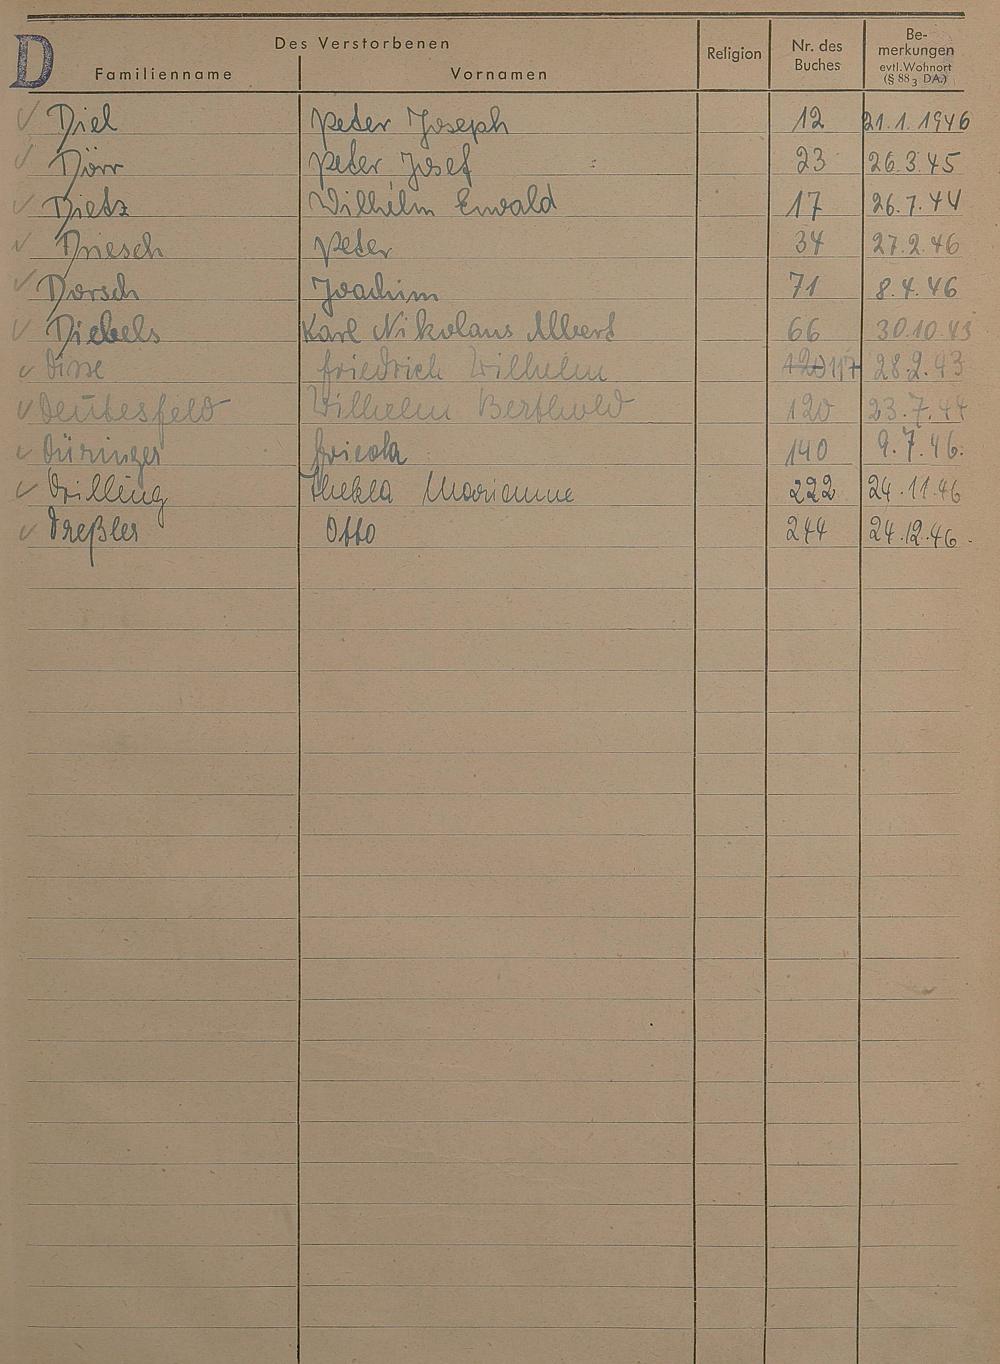 D
Des Verstorbenen
Familienname Vornamen Religion Nr. des Buches Bemerkungen evtl. Wohnort (§ 88 3 DA.)
✓ Diel Peter Joseph 12 21.1.1946
✓ Dörr Peter Josef 23 26.3.45
✓ Dietz Wilhelm Ewald 17 26.7.44
✓ Driesch Peter 34 27.2.46
✓ Dorsch Joachim 71 8.4.46
✓ Diebels Karl Nikolaus Albert 66 30.10.43
✓ Disse Friedrich Wilhelm 120 117 28.2.43
✓ Deutesfeld Wilhelm Berthold 120 23.7.44
✓ Düringer 140 9.7.46.
✓ Drilling Thekla Marianne 222 24.11.46
✓ Dreßler Otto 244 24.12.46.